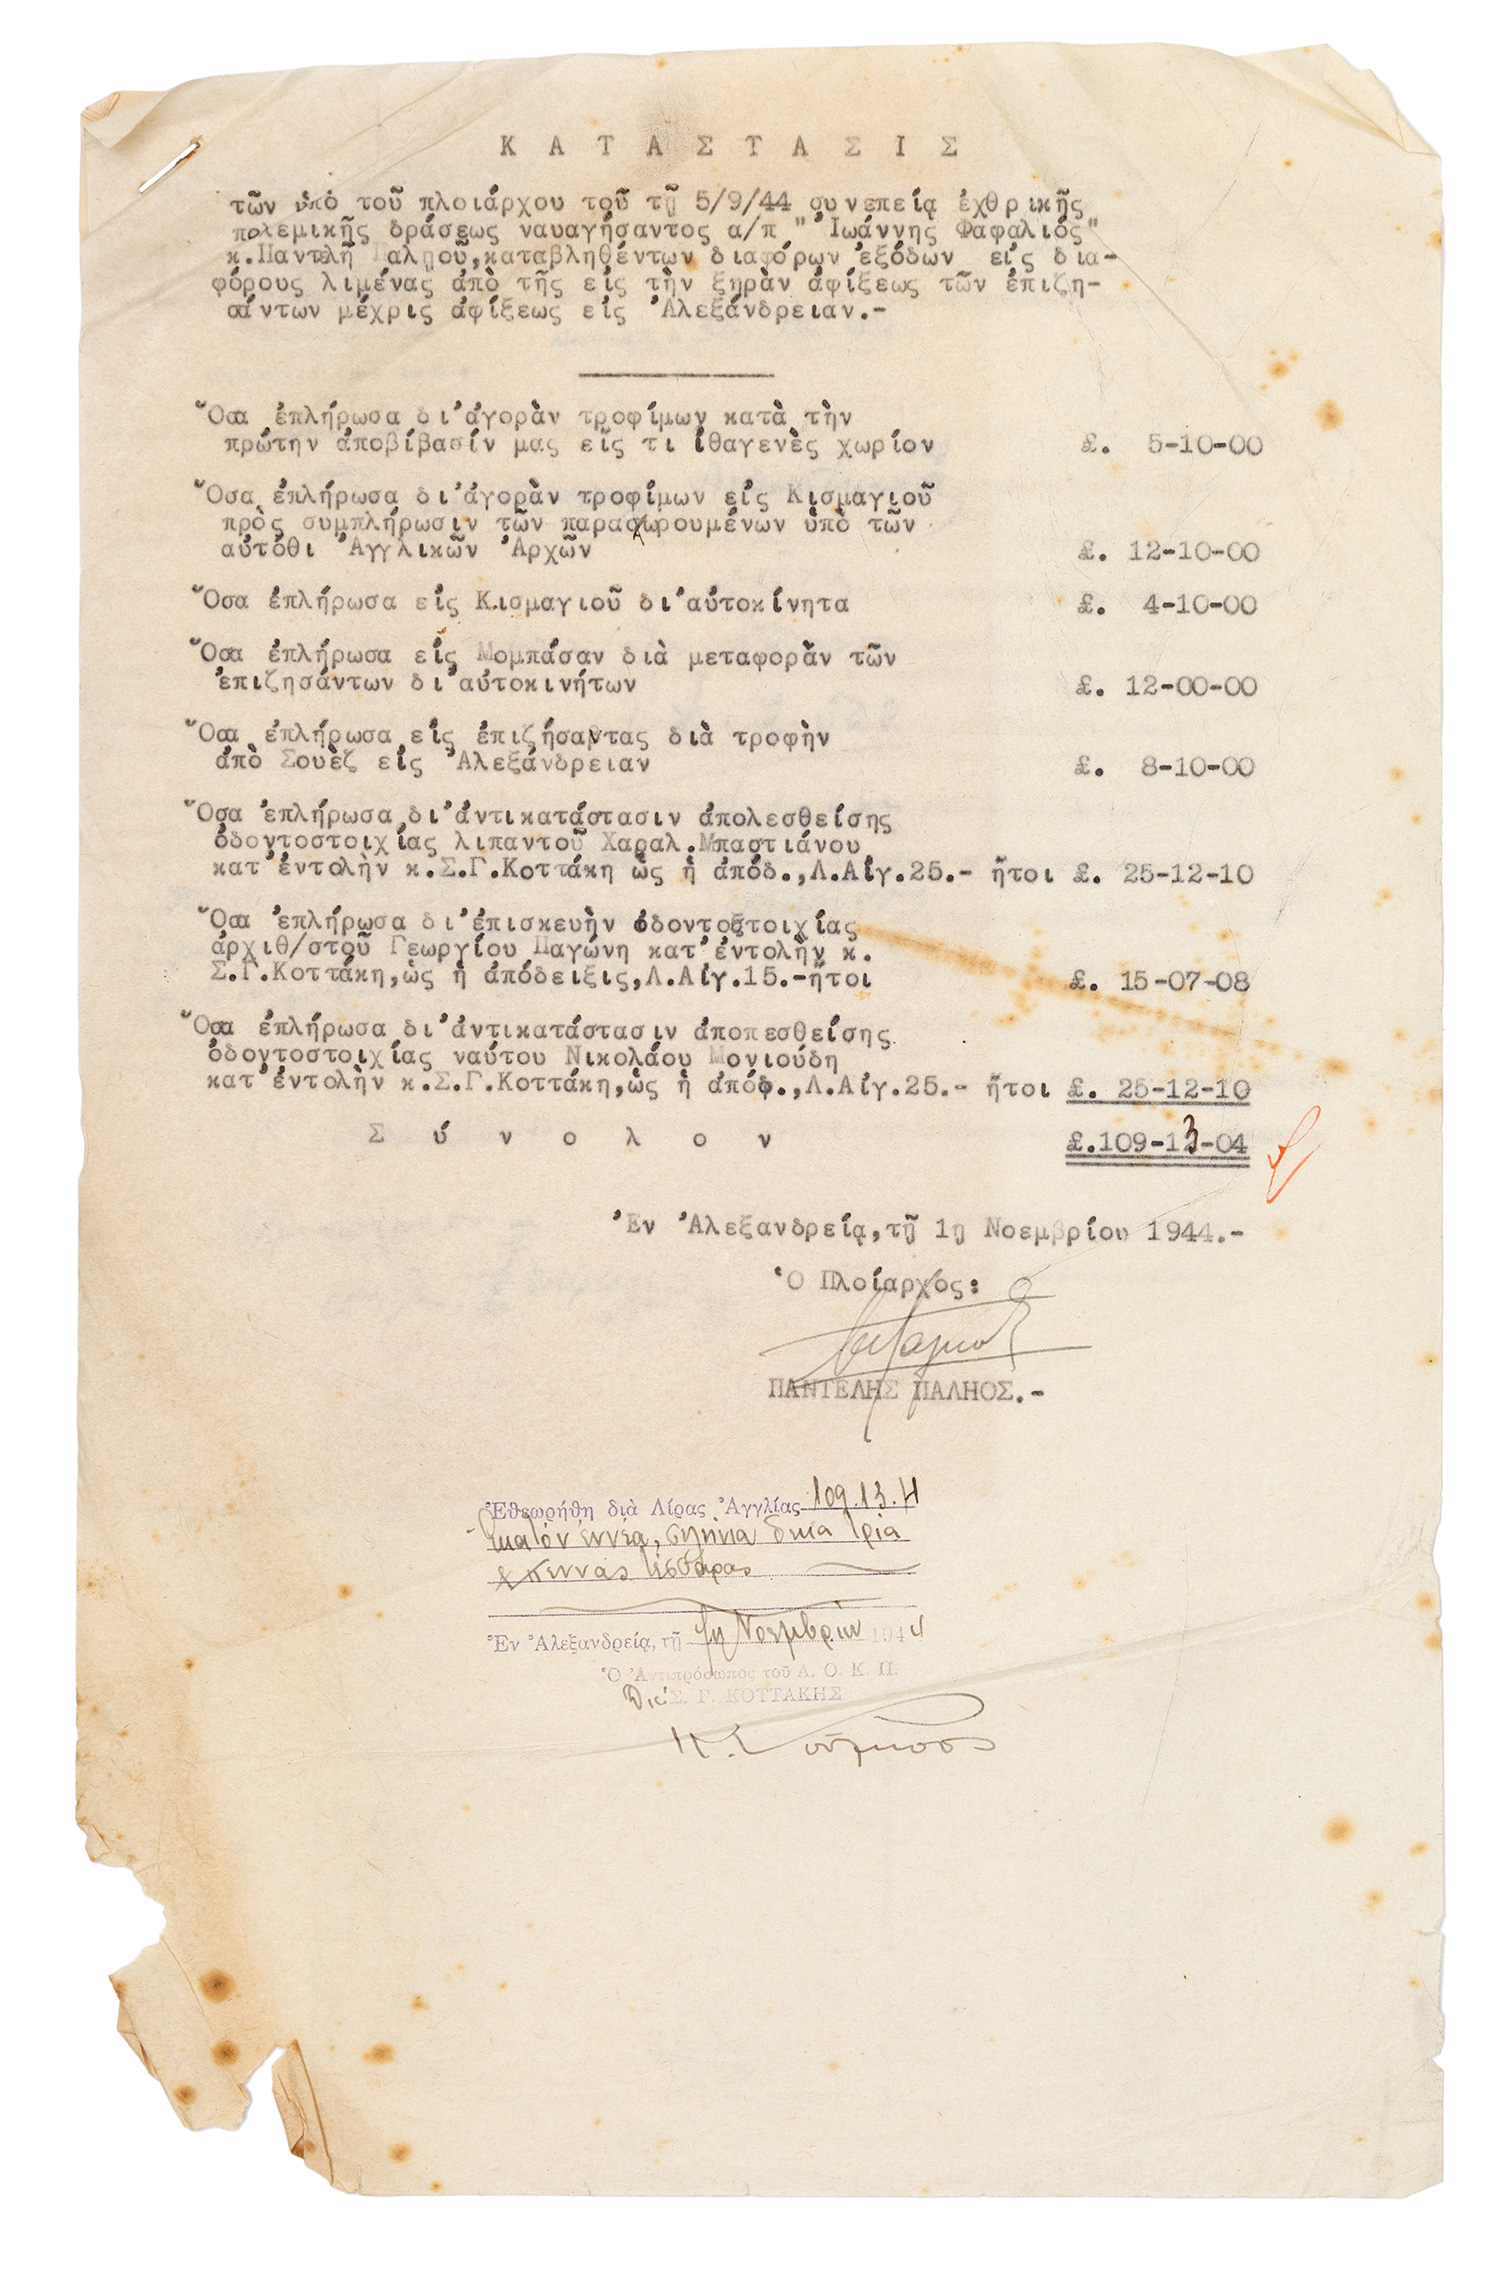 ΚΑΤΑΣΤΑΣΙΣ
τῶν ὑπὸ τοῦ πλοιάρχου τοῦ τῇ 5/9/44 συνεπείᾳ ἐχθρικῆς
πολεμικῆς δράσεως ναυαγήσαντος α/π " Ἰωάννης Φαφαλιός"
κ.Παντελῆ Παληοῦ,καταβληθέντων διαφόρων ἐξόδων εἰς δια-
φόρους λιμένας ἀπὸ τῆς εἰς τὴν ξηρὰν ἀφίξεως τῶν ἐπιζη-
σάντων μέχρις ἀφίξεως εἰς Ἀλεξάνδρειαν.-
Ὅσα ἐπλήρωσα δι'ἀγορὰν τροφίμων κατὰ τὴν
πρώτην ἀποβίβασίν μας εἴς τι ἰθαγενὲς χωρίον £. 5-10-00
Ὅσα ἐπλήρωσα δι'ἀγορὰν τροφίμων εἰς Κισμαγιοῦ
πρὸς συμπλήρωσιν τῶν παραχωρουμένων ὑπὸ τῶν
αὐτόθι Ἀγγλικῶν Ἀρχῶν £. 12-10-00
Ὅσα ἐπλήρωσα εἰς Κισμαγιοῦ δι'αὐτοκίνητα £. 4-10-00
Ὅσα ἐπλήρωσα εἰς Μομπάσαν διὰ μεταφορὰν τῶν
ἐπιζησάντων δι'αὐτοκινήτων £. 12-00-00
Ὅσα ἐπλήρωσα εἰς ἐπιζήσαντας διὰ τροφὴν
ἀπὸ Σουὲζ εἰς Ἀλεξάνδρειαν £. 8-10-00
Ὅσα ἐπλήρωσα δι'ἀντικατάστασιν ἀπολεσθείσης
ὀδοντοστοιχίας λιπαντοῦ Χαραλ.Μπαστιάνου
κατ'ἐντολὴν κ.Σ.Γ.Κοττάκη ὡς ἡ ἀπόδ.,Λ.Αἰγ.25.- ἤτοι £. 25-12-10
Ὅσα ἐπλήρωσα δι'ἐπισκευὴν ὀδοντοστοιχίας
ἀρχιθ/στοῦ Γεωργίου Παγώνη κατ'ἐντολὴν κ.
Σ.Γ.Κοττάκη,ὡς ἡ ἀπόδειξις,Λ.Αἰγ.15.-ἤτοι £. 15-07-08
Ὅσα ἐπλήρωσα δι'ἀντικατάστασιν ἀποπεσθείσης
ὀδοντοστοιχίας ναύτου Νικολάου Μονιούδη
κατ'ἐντολὴν κ.Σ.Γ.Κοττάκη,ὡς ἡ ἀπόδ.,Λ.Αἰγ.25.- ἤτοι £. 25-12-10
Σύνολον £.109-13-04
Ἐν Ἀλεξανδρείᾳ,τῇ 1ῃ Νοεμβρίου 1944.-
Ὁ Πλοίαρχος:
ΠΑΝΤΕΛΗΣ ΠΑΛΗΟΣ.-
Ἐθεωρήθη διὰ Λίρας Ἀγγλίας 109.13.4
Ἑκατόν ἐννέα, σελήνια δέκα τρία
& πέννας τέσσαρας
Ἐν Ἀλεξανδρείᾳ, τῇ 1ῃ Νοεμβρίου 1944
Ὁ Ἀντιπρόσωπος τοῦ Α. Ο. Κ. Π.
Σ. Γ. ΚΟΤΤΑΚΗΣ